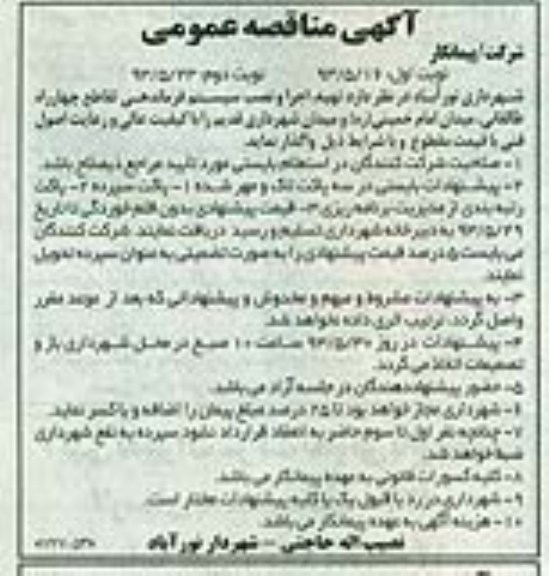 آگهی مناقصه عمومی
شرکت/پیمانکار
نوبت اول: ۹۳/۵/۱۶ نوبت دوم: ۹۳/۵/۲۳
شهرداری نورآباد در نظر دارد تهیه، اجرا و نصب سیستم فرماندهی تقاطع چهارراه
طالقانی، میدان امام خمینی (ره) و میدان شهرداری قدیم را با کیفیت عالی و رعایت اصول
فنی با قیمت مقطوع و با شرایط ذیل واگذار نماید.
۱- صلاحیت شرکت کنندگان در استعلام بایستی مورد تایید مراجع ذیصلاح باشد.
۲- پیشنهادات بایستی در سه پاکت لاک و مهر شده ۱- پاکت سپرده ۲- پاکت
رتبه بندی از مدیریت برنامه ریزی ۳- قیمت پیشنهادی بدون قلم خوردگی تا تاریخ
۹۳/۵/۲۹ به دبیرخانه شهرداری تسلیم و رسید دریافت نمایند. شرکت کنندگان
می بایست ۵ درصد قیمت پیشنهادی را به صورت تضمینی به عنوان سپرده تحویل
نمایند.
۳- به پیشنهادات مشروط و مبهم و مخدوش و پیشنهاداتی که بعد از موعد مقرر
واصل گردد، ترتیب اثری داده نخواهد شد.
۴- پیشنهادات در روز ۹۳/۵/۳۰ ساعت ۱۰ صبح در محل شهرداری باز و
تصمیمات اتخاذ می گردد.
۵- حضور پیشنهاددهندگان در جلسه آزاد می باشد.
۶- شهرداری مجاز خواهد بود تا ۲۵ درصد مبلغ پیمان را اضافه و یا کسر نماید.
۷- چنانچه نفر اول تا سوم حاضر به انعقاد قرارداد نشود سپرده به نفع شهرداری
ضبط خواهد شد.
۸- کلیه کسورات قانونی به عهده پیمانکار می باشد.
۹- شهرداری در رد یا قبول یک یا کلیه پیشنهادات مختار است.
۱۰- هزینه آگهی به عهده پیمانکار می باشد.
نصیب اله حاجتی - شهردار نورآباد